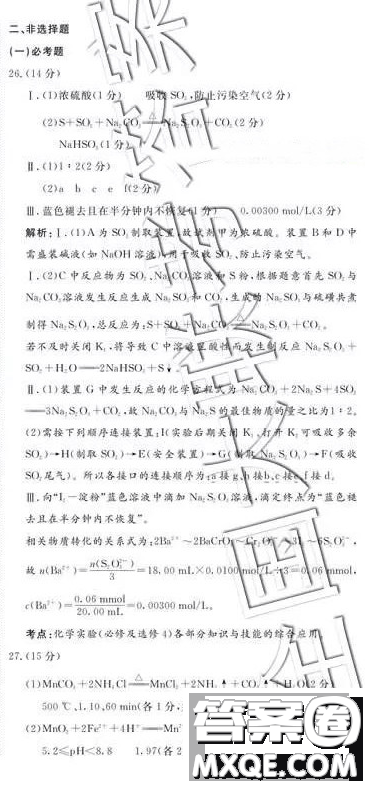 二、非选择题
(一)必考题
26.(14分)
Ⅰ.(1)浓硫酸(1分) 吸收SO₂,防止污染空气(2分)
(2)S+SO₂+Na₂CO₃ △ Na₂S₂O₃+CO₂(2分)
NaHSO₃(1分)
Ⅱ.(1)1∶2(2分)
(2)a b c e f(2分)
Ⅲ.蓝色褪去且在半分钟内不恢复(1分) 0.00300 mol/L(3分)
解析:Ⅰ.(1)A为SO₂制取装置,故试剂甲为浓硫酸。装置B和D中
需盛装碱液(如NaOH溶液),用于吸收SO₂、防止污染空气。
Ⅰ.(2)C中反应物为SO₂、Na₂CO₃溶液和S粉,根据题意首先SO₂与
Na₂CO₃溶液发生反应生成Na₂SO₃和CO₂,生成的Na₂SO₃与硫磺共煮
制得Na₂S₂O₃,总反应为:S+SO₂+Na₂CO₃ △ Na₂S₂O₃+CO₂。
若不及时关闭K₁,将导致C中溶液显酸性而发生副反应Na₂S₂O₃+
SO₂+H₂O══2NaHSO₃+S↓。
Ⅱ.(1)装置G中发生反应的化学方程式为Na₂CO₃+2Na₂S+4SO₂
══3Na₂S₂O₃+CO₂,故Na₂CO₃与Na₂S的最佳物质的量之比为1∶2。
(2)需按下列顺序连接装置:I(实验后期关闭K₁、打开K₂可吸收多余
SO₂)→H(制取SO₂)→E(安全装置)→G(制取Na₂S₂O₃)→F(吸收
SO₂尾气)。所以各接口的连接顺序为:a接g、h接b、c接e、f接d。
Ⅲ.向“I₂-淀粉”蓝色溶液中滴加Na₂S₂O₃溶液,滴定终点为“蓝色褪
去且在半分钟内不恢复”。
相关物质转化的关系式为:2Ba²⁺~2BaCrO₄~Cr₂O₇²⁻~3I₂~6S₂O₃²⁻,
故n(Ba²⁺)=n(S₂O₃²⁻)/3=18.00 mL×0.0100 mol/L÷3=0.06 mmol,
c(Ba²⁺)=0.06 mmol/20.00 mL=0.00300 mol/L。
考点:化学实验(必修及选修4)各部分知识与技能的综合应用
27.(15分)
(1)MnCO₃+2NH₄Cl △ MnCl₂+2NH₃↑+CO₂↑+H₂O(2分)
500 ℃、1.10、60 min(各1分,
(2)MnO₂+2Fe²⁺+4H⁺══Mn²
5.2≤pH<8.8 1.97(各2
答案卷
MXQE.COM